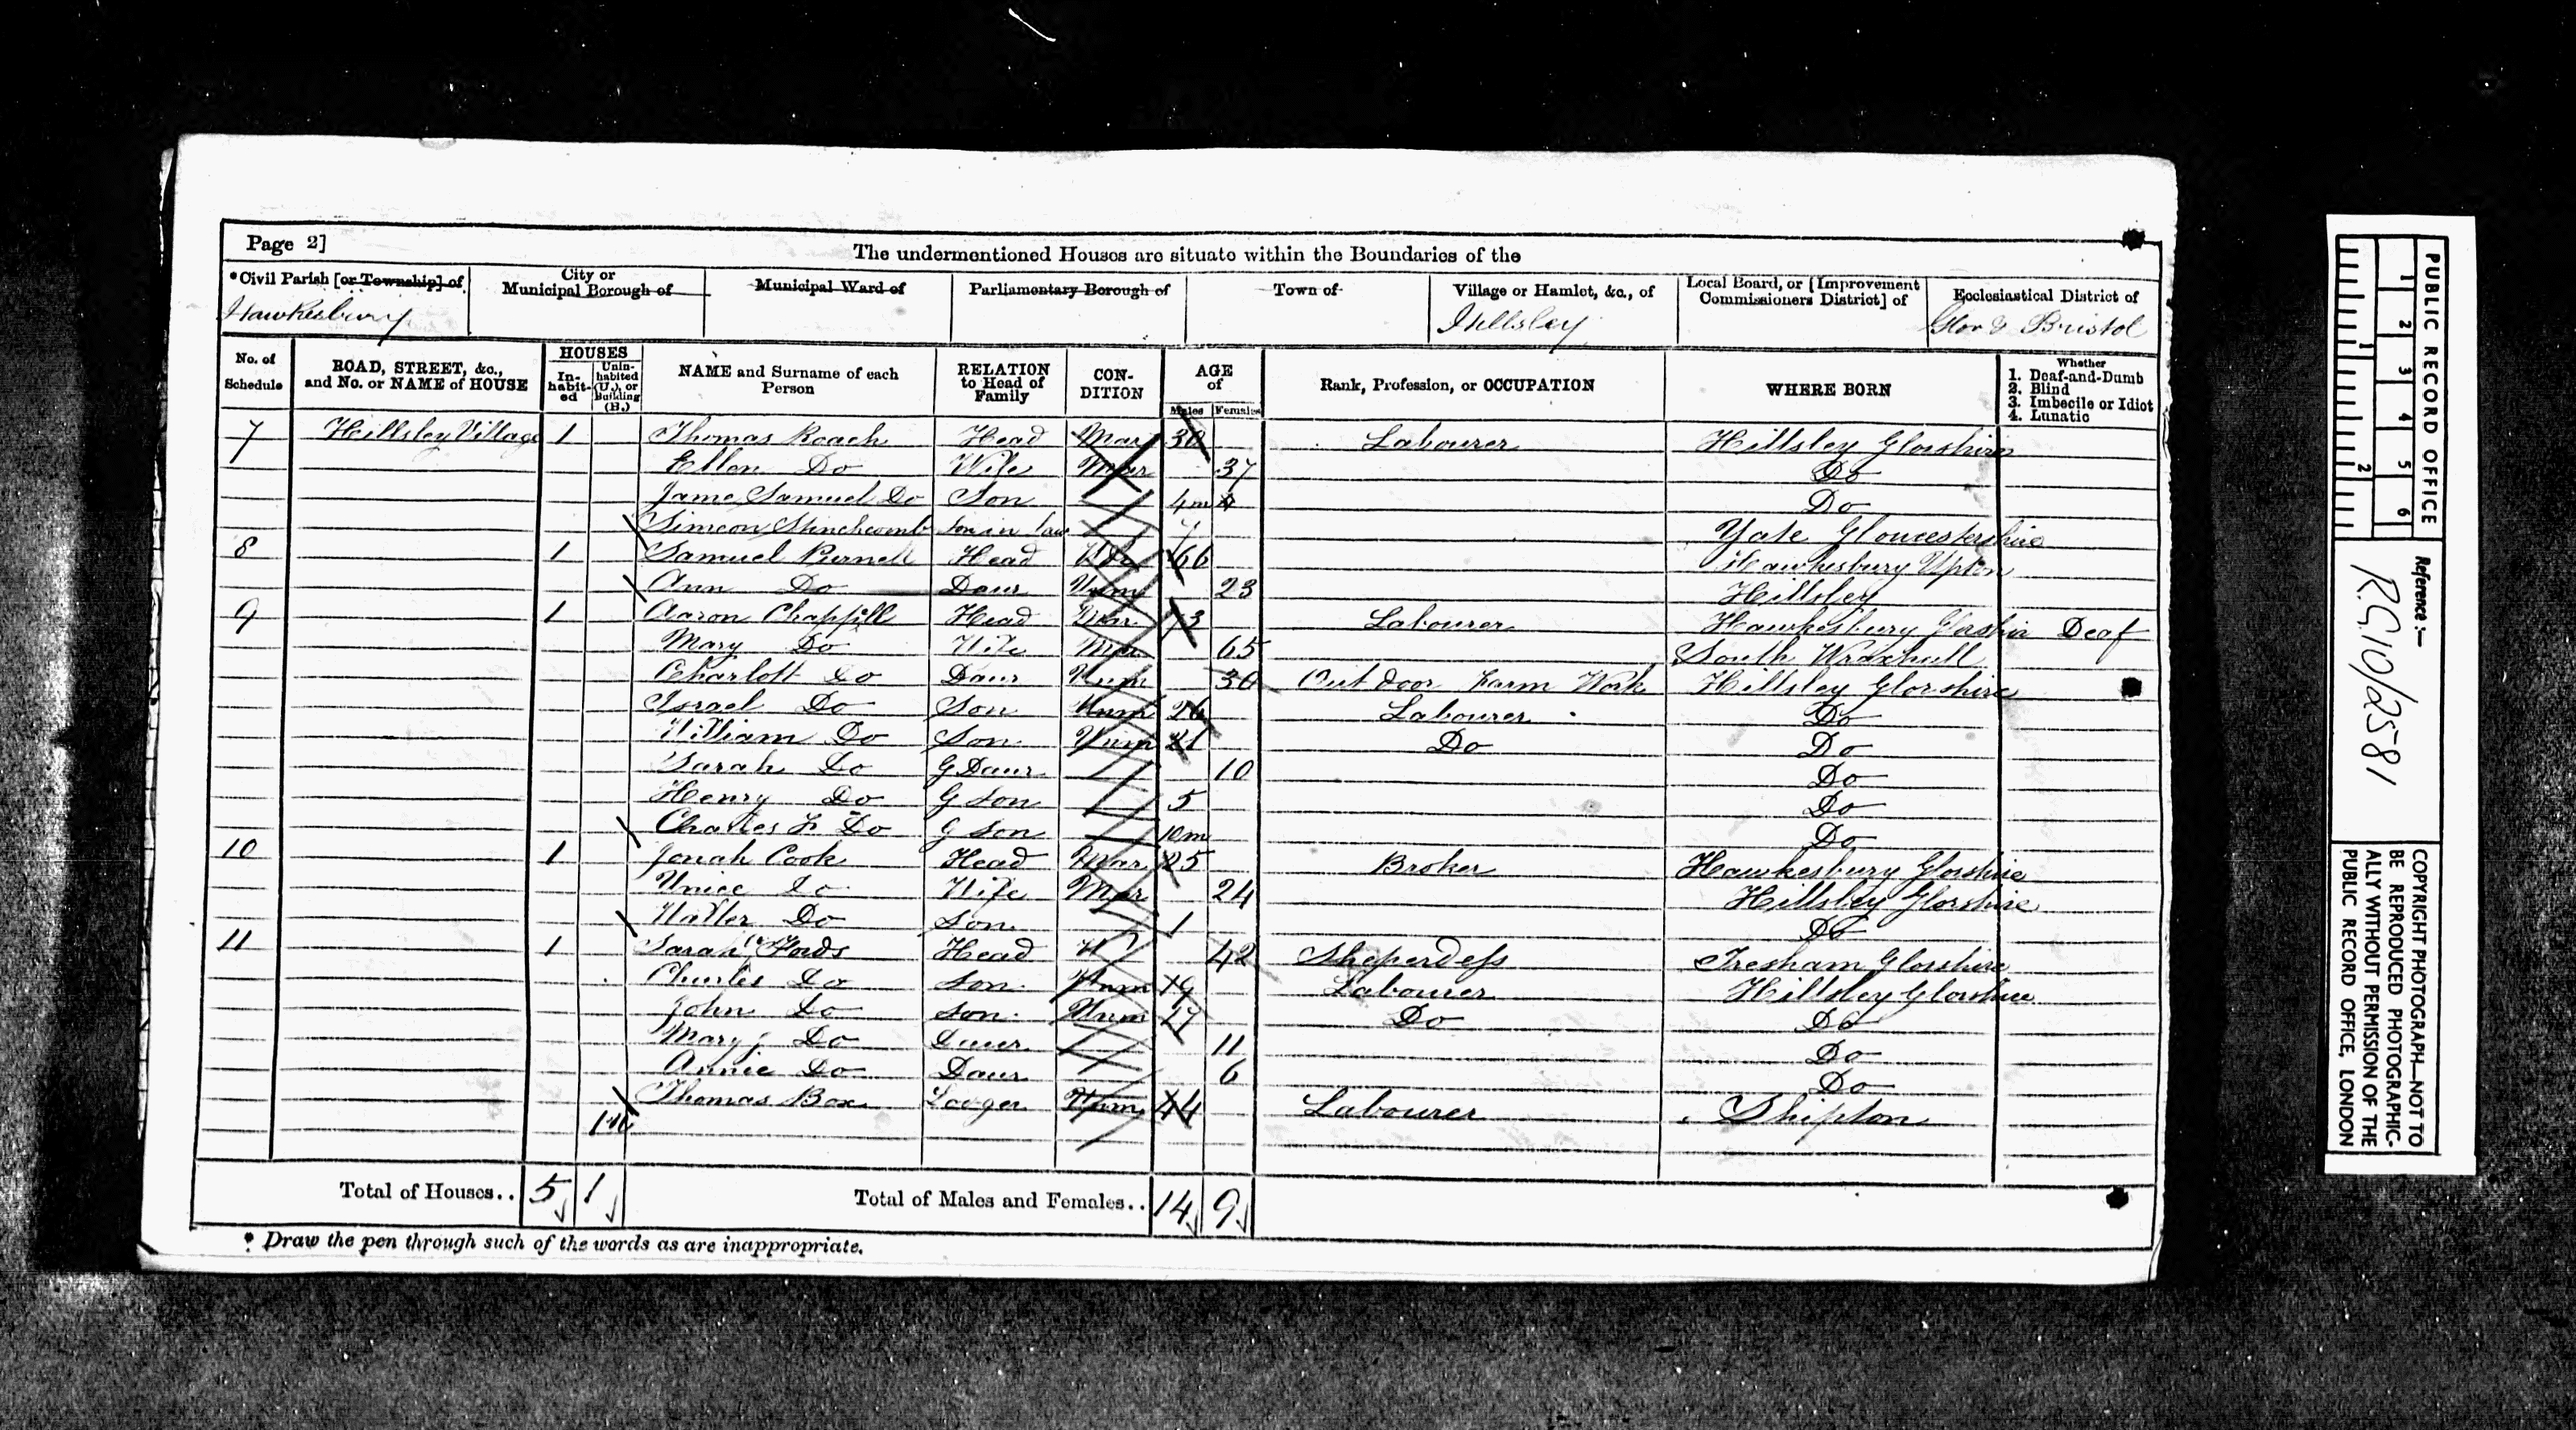 Page 2]
The undermentioned Houses are situate within the Boundaries of the
*Civil Parish [or Township] of City or Municipal Borough of Municipal Ward of Parliamentary Borough of Town of Village or Hamlet, &c., of Local Board, or [Improvement Commissioners District] of Ecclesiastical District of
Hawkesbury Hillsley Glor & Bristol
No. of Schedule ROAD, STREET, &c., and No. or NAME of HOUSE HOUSES In-habit-ed Unin-habited (U.), or Building (B.) NAME and Surname of each Person RELATION to Head of Family CON-DITION AGE of Males Females Rank, Profession, or OCCUPATION WHERE BORN Whether 1. Deaf-and-Dumb 2. Blind 3. Imbecile or Idiot 4. Lunatic
7 Hillsley Village 1 Thomas Roach Head Mar Labourer Hillsley Glorshire
Ellen Do Wife Mar 37 Do
Jame Samuel Do Son 4m Do
Simeon Stinchcomb Son in law 7 Yate Gloucestershire
8 1 Samuel Purnell Head 66 Hawkesbury Upton
Ann Do Daur Unm 23 Hillsley
9 1 Aaron Chappill Head Mar 73 Labourer Hawkesbury Glorshir Deaf
Mary Do Wife Mar 65 South Wraxhall
Charlott Do Daur Unm 36 Out door Farm Work Hillsley Glorshire
Israel Do Son Unm 26 Labourer Do
William Do Son Unm 21 Do Do
Sarah Do G Daur 10 Do
Henry Do G Son 5 Do
Charles F Do G Son 10m Do
10 1 Jonah Cook Head Mar 25 Broker Hawkesbury Glorshire
Unice Do Wife Mar 24 Hillsley Glorshire
Walter Do Son 1 Do
11 1 Sarah Head W 42 Sheperdess Tresham Glorshire
Charles Do Son Unm 19 Labourer Hillsley Glorshire
John Do Son Unm 17 Do Do
Mary Do Daur 11 Do
Annie Do Daur 6 Do
Thomas Box Lodger Unm 44 Labourer Shipton
1 U
Total of Houses.. 5 1 Total of Males and Females.. 14 9
* Draw the pen through such of the words as are inappropriate.
PUBLIC RECORD OFFICE
1 2 3 4 5 6
1 2
Reference :—
RG10/2581
COPYRIGHT PHOTOGRAPH—NOT TO
BE REPRODUCED PHOTOGRAPHIC-
ALLY WITHOUT PERMISSION OF THE
PUBLIC RECORD OFFICE, LONDON